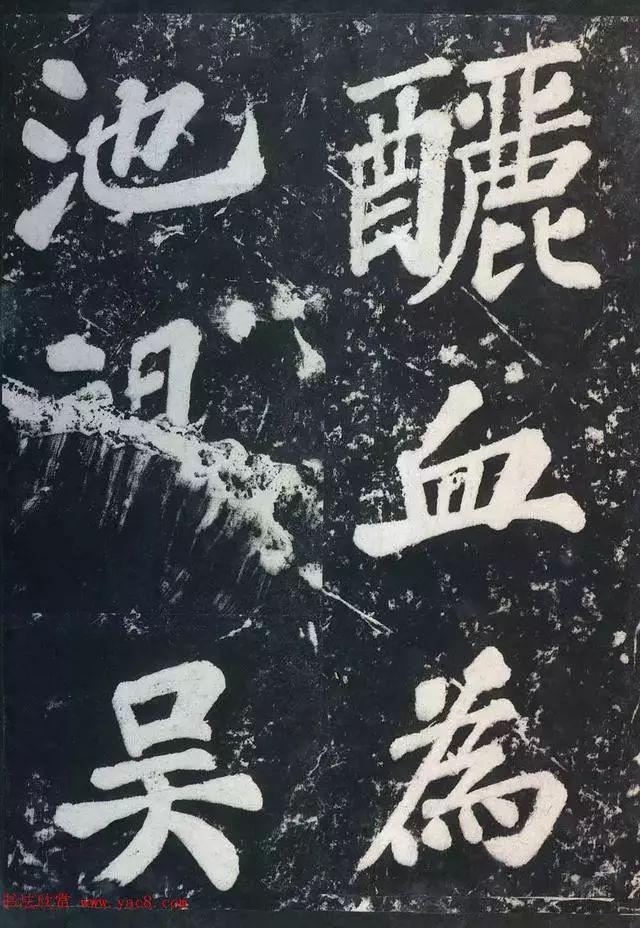 釃血為
池吴
书法欣赏 www.yac8.com